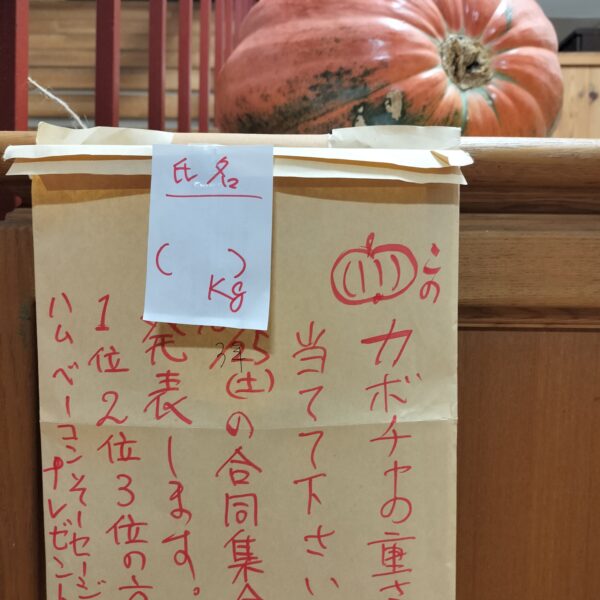 氏名
( )
Kg
この
カボチャの重さ
当てて下さい
25(土)の合同集会
発表します。
1位2位3位の
ハムベーコンソーセージ
プレゼント